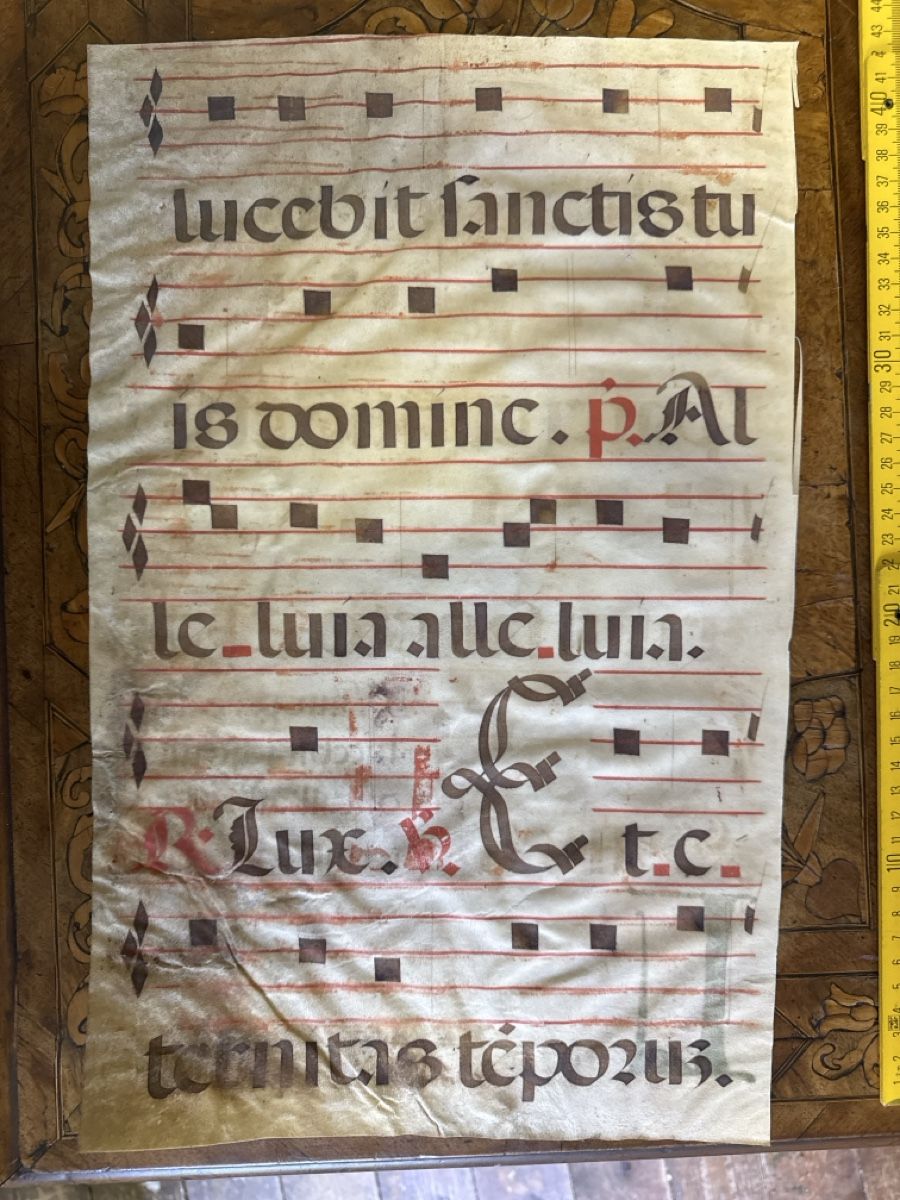 lucebit sanctis tu
is domine. p. Al
le_luia alle_luia.
R. Lux. V. Et_e_
ternitas tēporus.
44
43
4
41
40
39
38
37
36
35
34
33
32
31
30
29
28
27
26
25
24
23
22
21
20
19
18
17
16
15
14
13
12
11
10
9
8
7
6
5
4
3
2
1